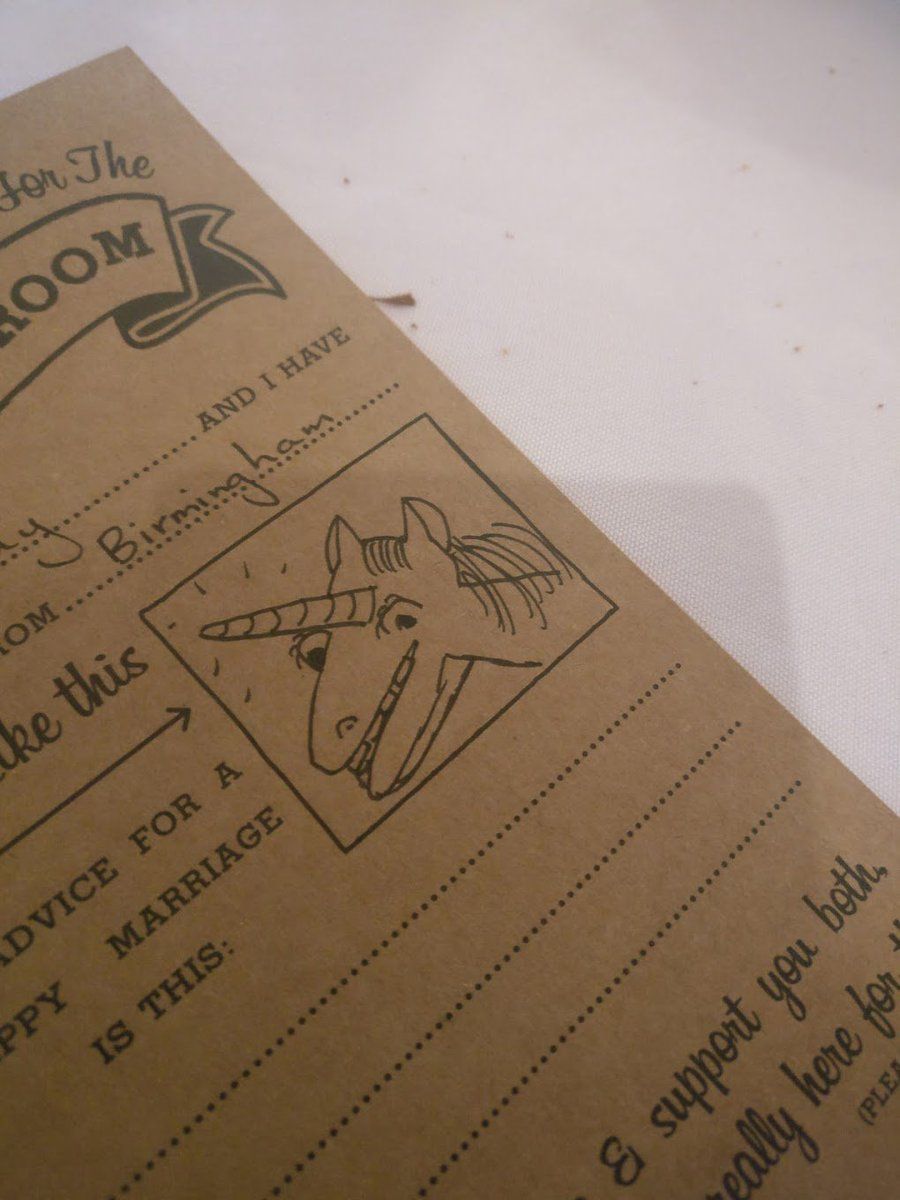 For The
ROOM
AND I HAVE
Birmingham
this
ADVICE FOR A
MARRIAGE
IS THIS:
& support you both,
really here for